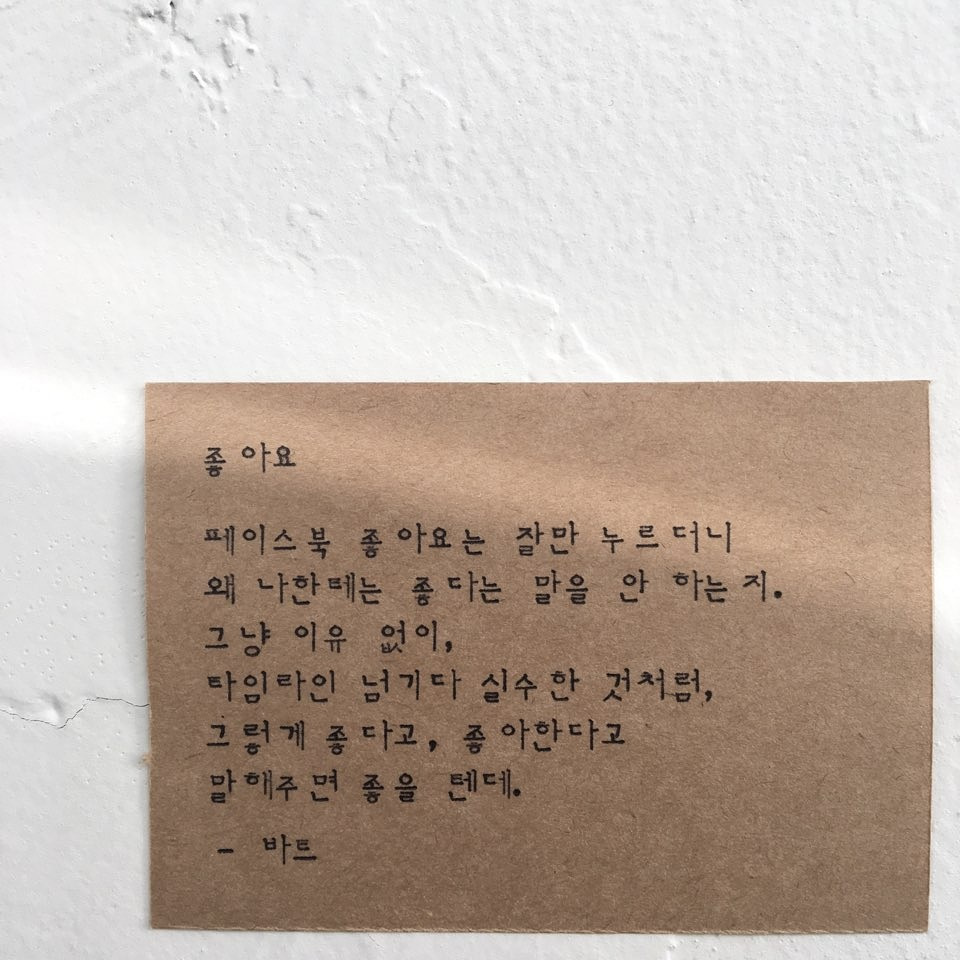 좋아요
페이스북 좋아요는 잘만 누르더니
왜 나한테는 좋다는 말을 안 하는지.
그냥 이유 없이,
타임라인 넘기다 실수한 것처럼,
그렇게 좋다고, 좋아한다고
말해주면 좋을 텐데.
- 바트